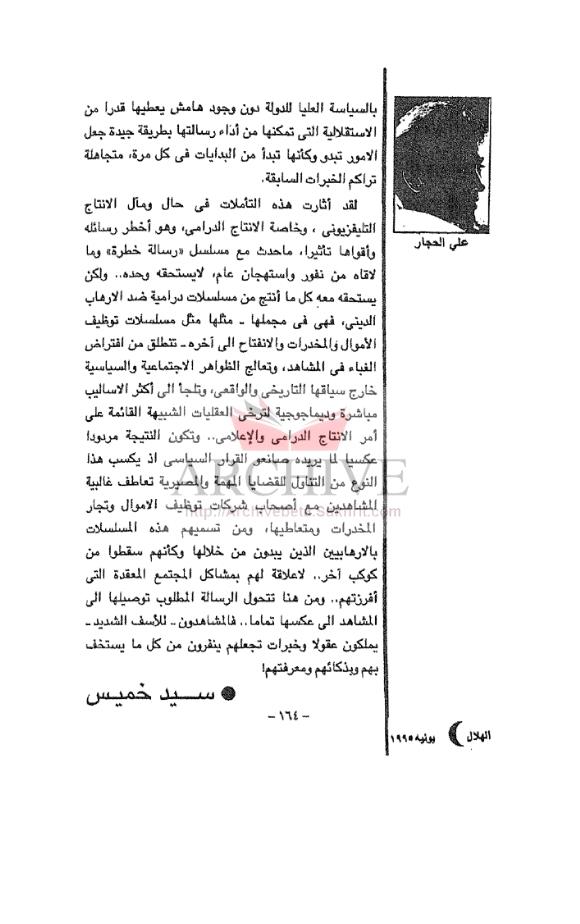 بالسياسة العليا للدولة دون وجود هامش يعطيها قدرا من
الاستقلالية التى تمكنها من أداء رسالتها بطريقة جيدة جعل
الامور تبدو وكأنها تبدأ من البدايات فى كل مرة، متجاهلة
تراكم الخبرات السابقة.
لقد أثارت هذه التأملات فى حال ومآل الانتاج
التليفزيونى ، وخاصة الانتاج الدرامى، وهو أخطر رسائله
وأقواها تأثيرا، ماحدث مع مسلسل «رسالة خطرة» وما
لاقاه من نفور واستهجان عام، لايستحقه وحده.. ولكن
يستحقه معه كل ما أنتج من مسلسلات درامية ضد الارهاب
الدينى، فهى فى مجملها ـ مثلها مثل مسلسلات توظيف
الأموال والمخدرات والانفتاح الى آخره ـ تنطلق من افتراض
الغباء فى المشاهد، وتعالج الظواهر الاجتماعية والسياسية
خارج سياقها التاريخى والواقعى، وتلجأ الى أكثر الاساليب
مباشرة وديماجوجية لترضى العقليات الشبيهة القائمة على
أمر الانتاج الدرامى والإعلامى.. وتكون النتيجة مردودا
عكسيا لما يريده صانعو القرار السياسى اذ يكسب هذا
النوع من التناول للقضايا المهمة والمصيرية تعاطف غالبية
المشاهدين مع أصحاب شركات توظيف الاموال وتجار
المخدرات ومتعاطيها، ومن تسميهم هذه المسلسلات
بالارهابيين الذين يبدون من خلالها وكأنهم سقطوا من
كوكب آخر.. لاعلاقة لهم بمشاكل المجتمع المعقدة التى
أفرزتهم.. ومن هنا تتحول الرسالة المطلوب توصيلها الى
المشاهد الى عكسها تماما.. فالمشاهدون ـ للأسف الشديد ـ
يملكون عقولا وخبرات تجعلهم ينفرون من كل ما يستخف
بهم وبذكائهم ومعرفتهم!
● سيد خميس
على الحجار
ARCHIVE
http://Archivebeta.Sakhrit.com
- ١٦٤ -
الهلال يونيه ١٩٩٥